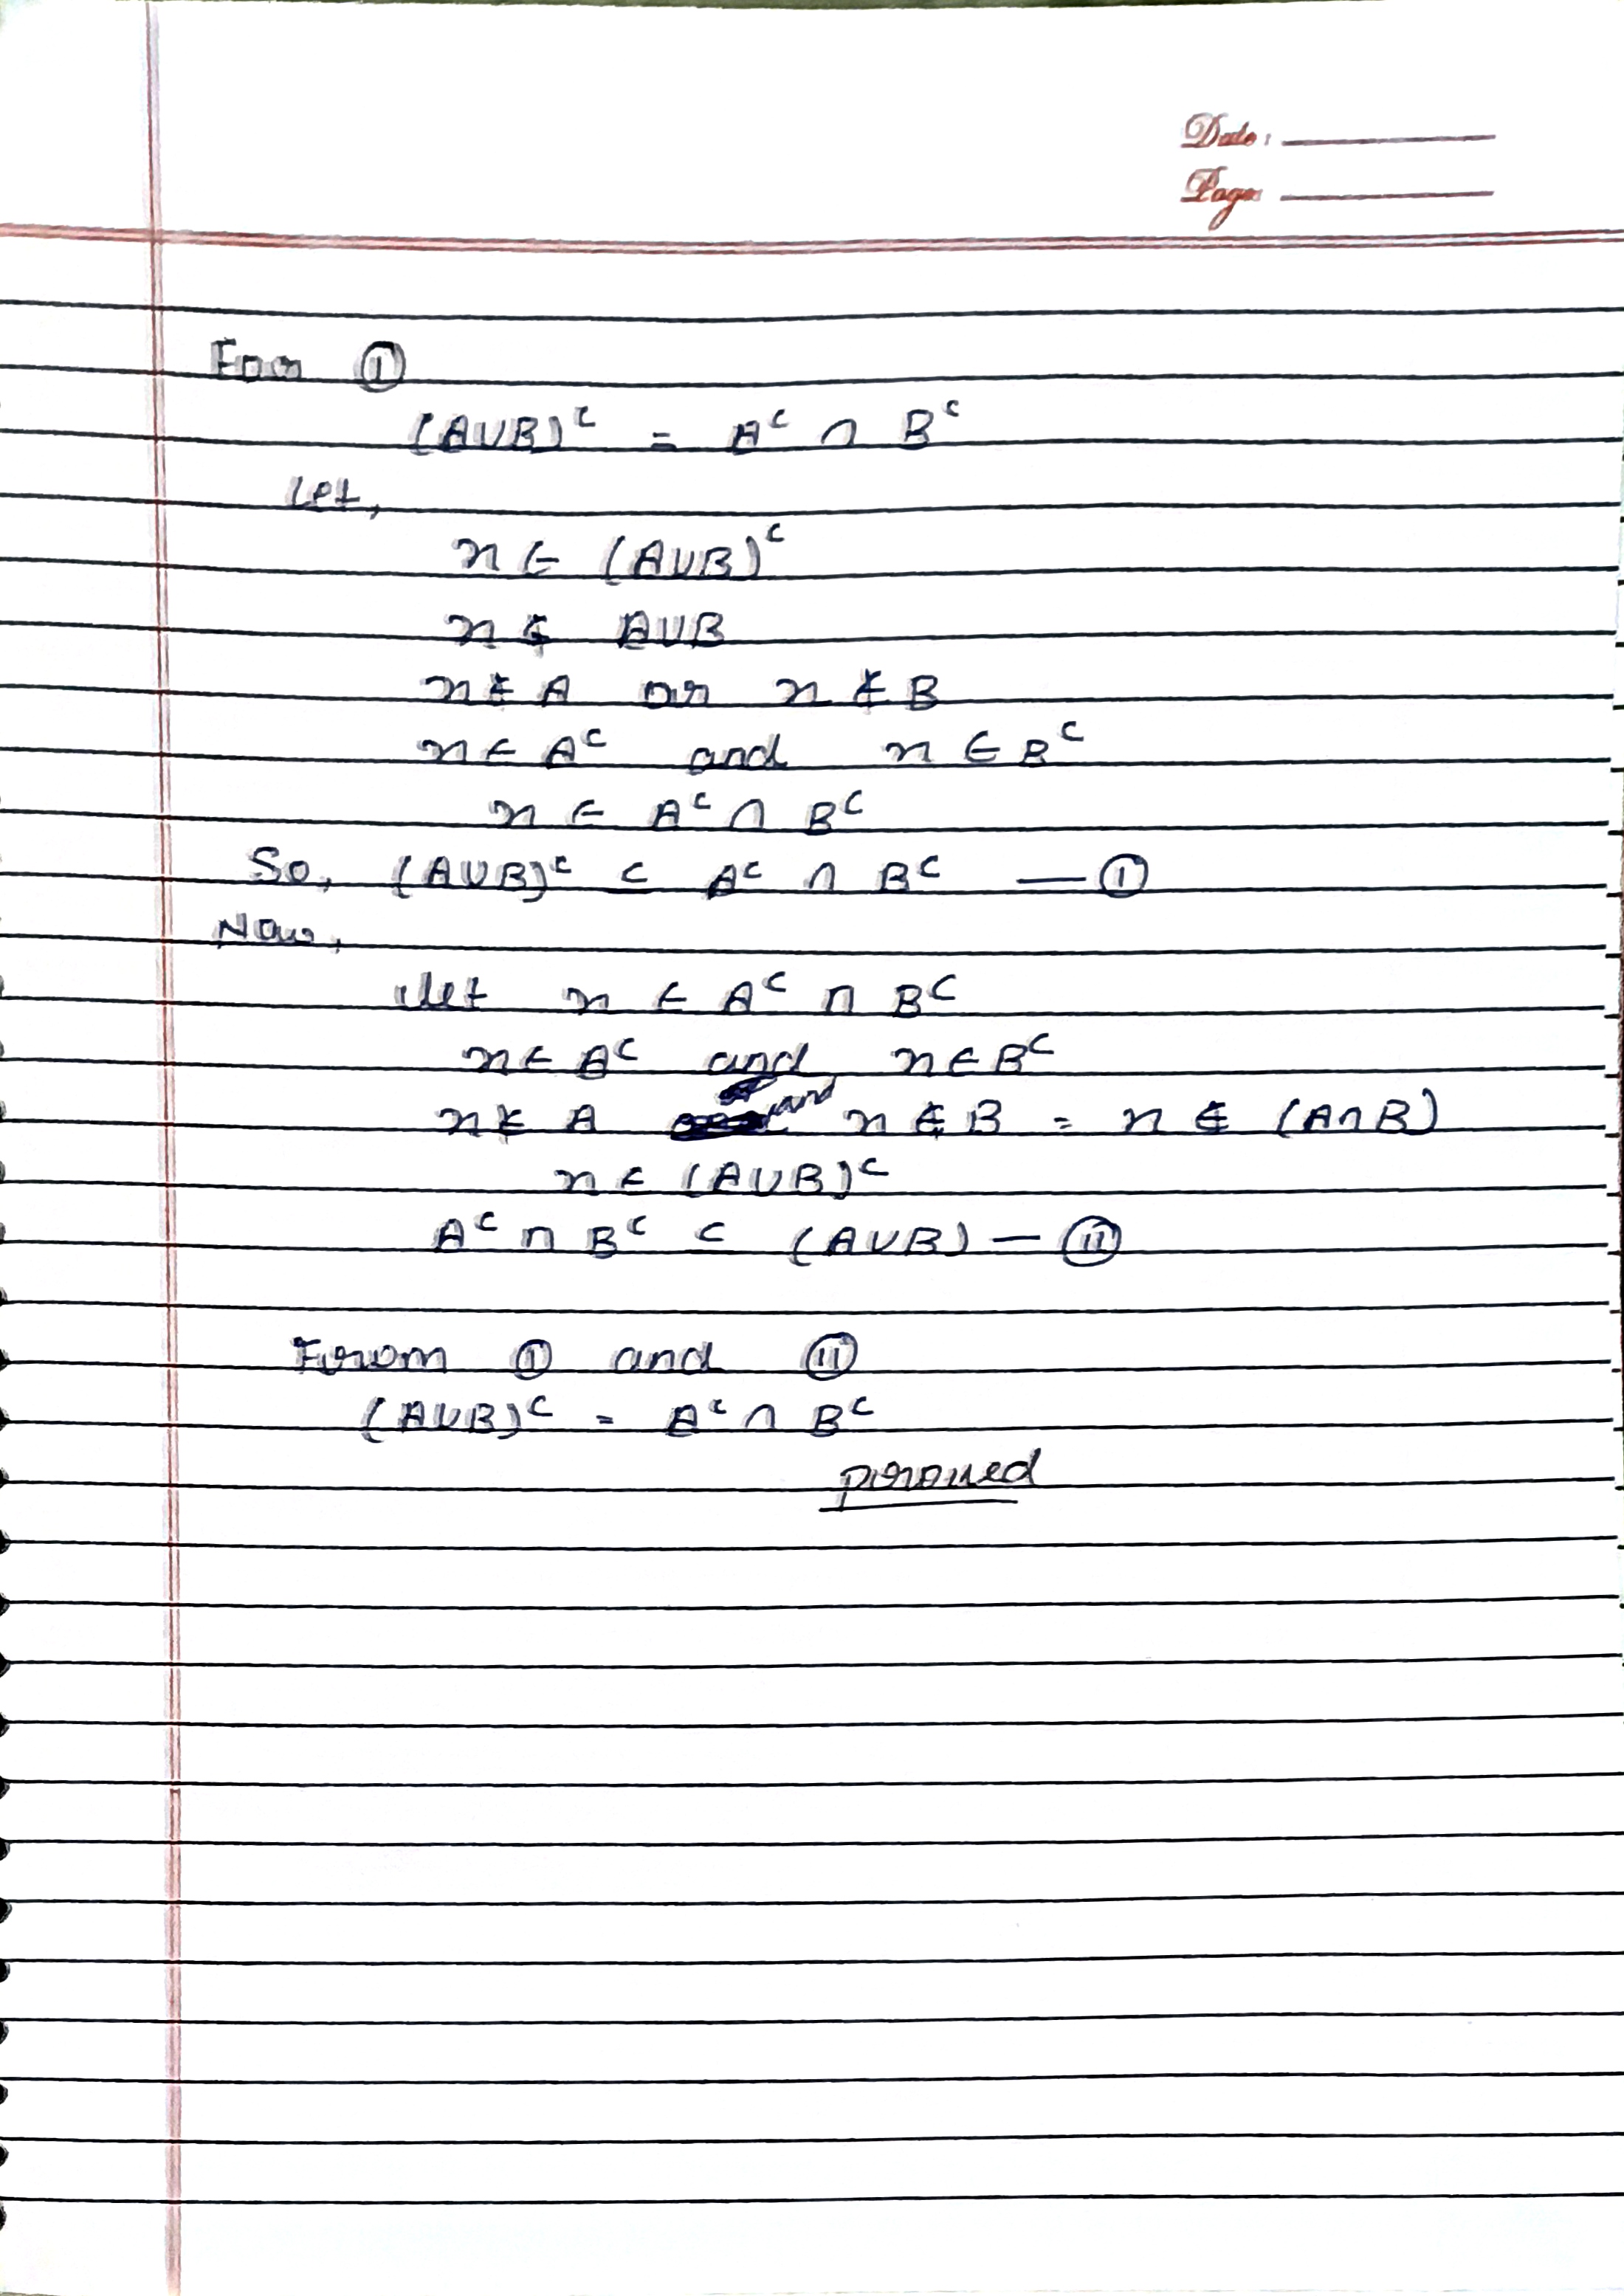 Date:
Page
For ①
(A∪B)ᶜ = Aᶜ ∩ Bᶜ
Let,
x ∈ (A∪B)ᶜ
x ∉ A∪B
x ∉ A or x ∉ B
x ∈ Aᶜ and x ∈ Bᶜ
x ∈ Aᶜ ∩ Bᶜ
So, (A∪B)ᶜ ⊂ Aᶜ ∩ Bᶜ — ①
Now,
let x ∈ Aᶜ ∩ Bᶜ
x ∈ Aᶜ and x ∈ Bᶜ
x ∉ A and x ∉ B = x ∉ (A∩B)
x ∈ (A∪B)ᶜ
Aᶜ ∩ Bᶜ ⊂ (A∪B) — ⑪
From ① and ⑪
(A∪B)ᶜ = Aᶜ ∩ Bᶜ
proved